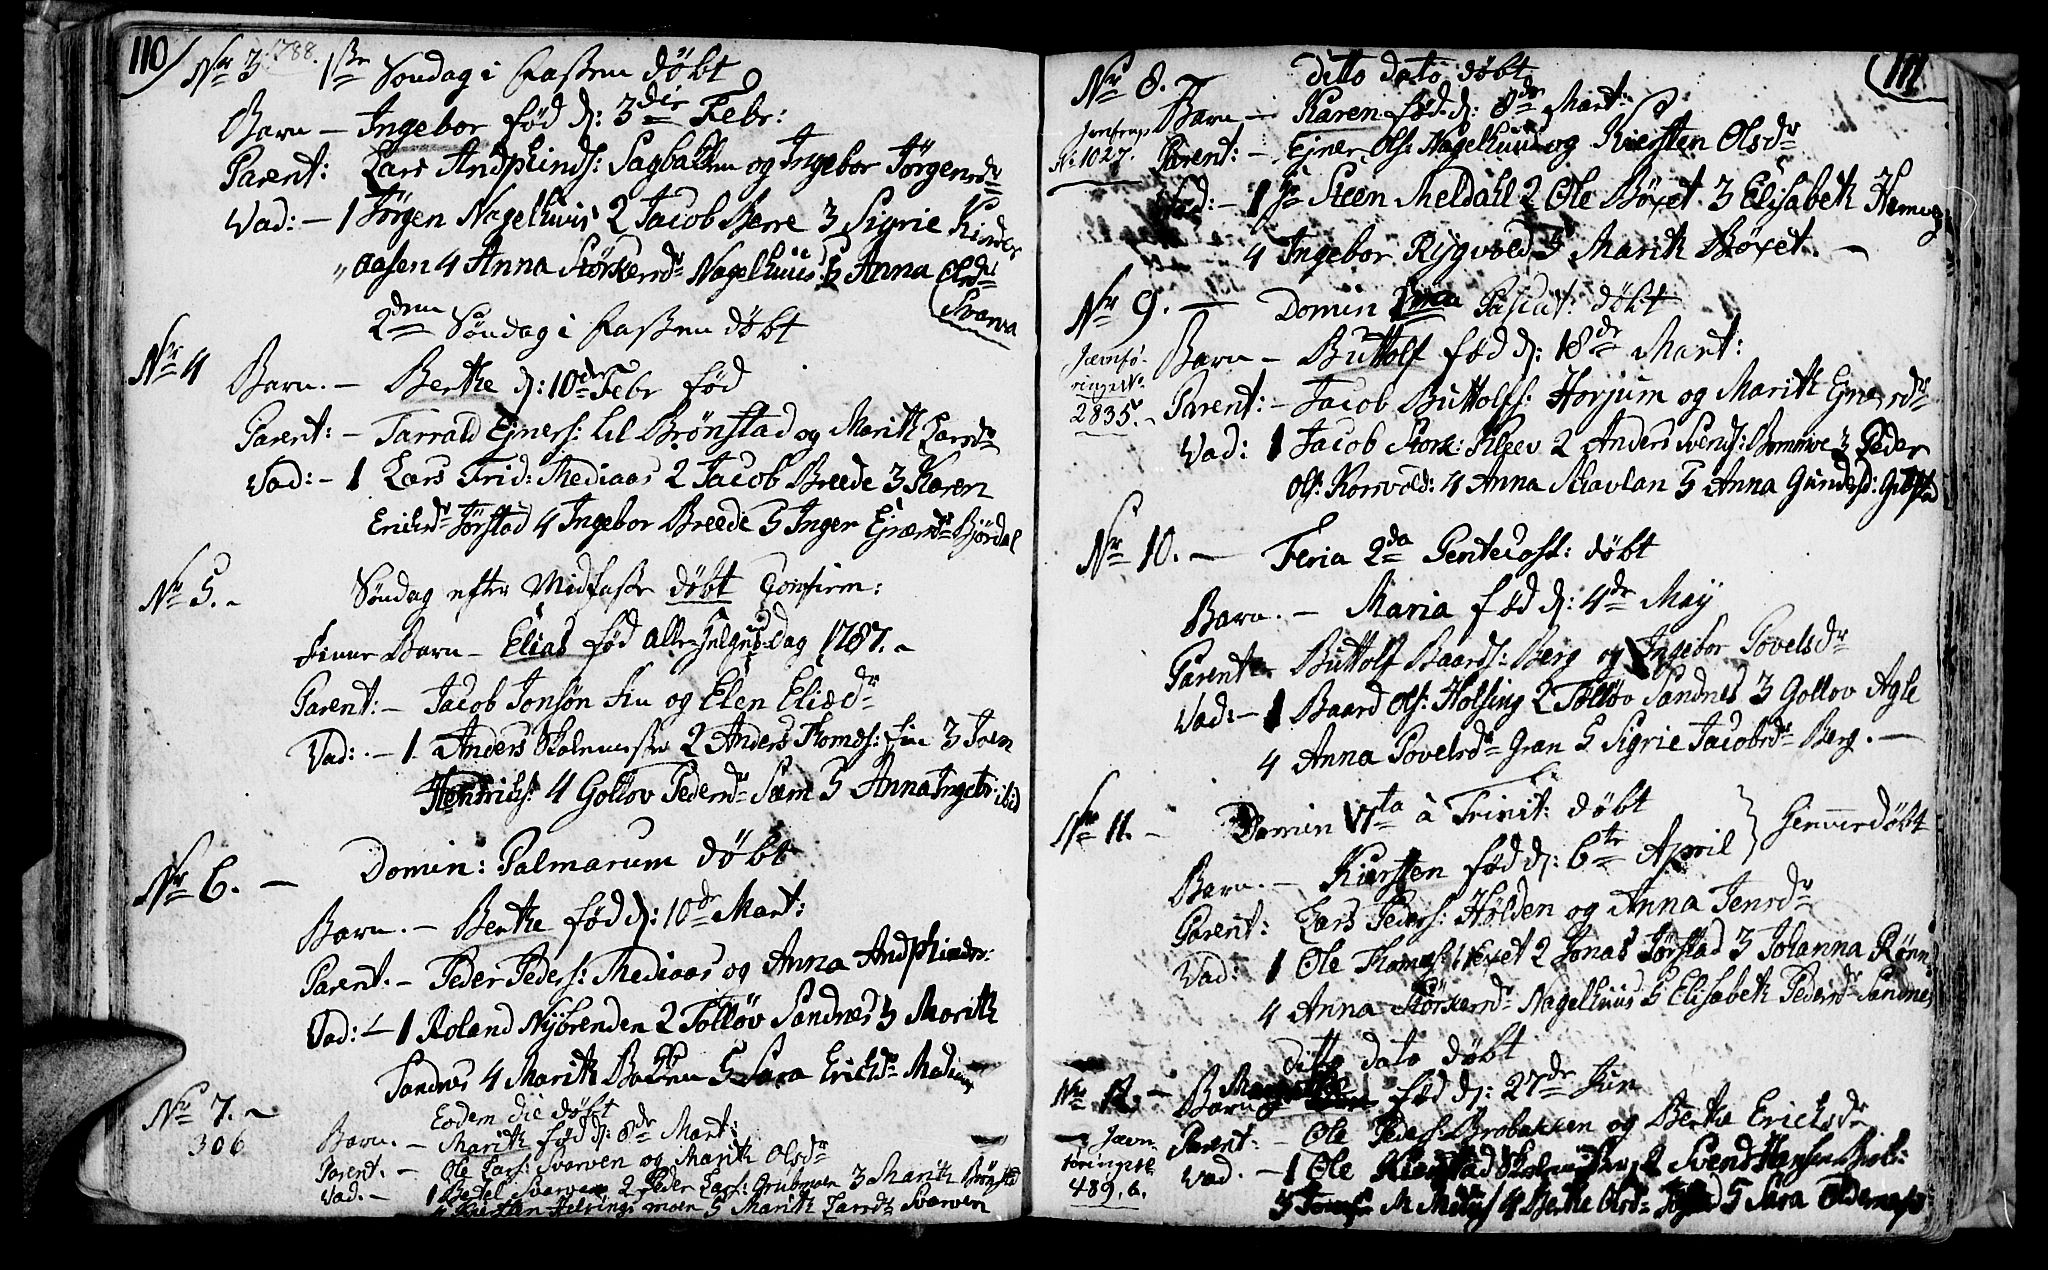 110
Nr 3 1788. 1ste Søndag i Fasten døbt
Barn – Ingebor fød d: 3die Febr:
Parent: Lars Andphinds: Sagbakken og Ingebor Jørgensdr
Vad: – 1 Jørgen Nagelhuus 2 Jacob Berre 3 Sigrie Kinder
" aasen 4 Anna Størkersdr Nagelhuus 5 Anna Olsdr
Svarva
2den Søndag i Fasten døbt
Nr 4
Barn. – Berthe d: 10de Febr fød
Parent: – Tarrald Ejners: lil Brønstad og Marith Larsdr
Vad: – 1 Lars Frid: Mediaas 2 Jacob Breede 3 Karen
Erichsdr Jørstad 4 Ingebor Breede 5 Inger Ejnersdr Bjørdal
Nr 5. – Søndag efter Midfaste døbt Confirm:
Finne Barn – Elias fød alle Helgens Dag 1787. –
Parent: – Jacob Jonsøn Fin og Elen Eliædr
Vad: – 1 Anders Skolemester 2 Anders Thomes: Fin 3 Joen
Hendrichs: 4 Gollov Pedersdr Sæm 5 Anna Ingebr ibid
Nr 6. – Domin: Palmarum døbt
Barn. – Berthe fød d: 10de Mart:
Parent. – Peder Peders: Mediaas og Anna Andphinds:
Vad: – 1 Roland Nybrenden 2 Tolløv Sandnes 3 Marith
Sandnes 4 Marith Bakken 5 Sara Erichsdr
Nr 7. – Eodem die døbt
306
Barn. – Marith fød d: 8de Mart:
Parent. – Ole Lars: Svarven og Marith Olsdr
Vad. – 1 Betel Svarven 2 Peder Lars: Grubmoen 3 Marith Brønstad
4 Kiersten Helsingsmoen 5 Marith Larsdr Svarven
111
Nr 8. ditto dato døbt
Barn – Karen fød d: 8de Mart:
Jemførings
Nr 1027.
Parent: – Ejner Ols: Nagelhuus og Kiersten Olsdr
Vad: – 1 Hr Steen Meldall 2 Ole Bøxet 3 Elisabeth
4 Ingebor Rygvold 5 Marith Bøxet. –
Nr 9. – Domin 2ma Pascat: døbt
Barn – Buttolf fød d: 18de Mart:
Jævnfø-
ringsNr
2835. –
Parent: – Jacob Buttolfs: Horjum og Marith Ejnersdr
Vad: 1 Jacob Stork: Kleev 2 Anders Svends: 3 Peder
Ols: Kornvold: 4 Anna Schavlan 5 Anna Gundersd:
Nr 10. – Feria 2da Pentecost: døbt
Barn. – Maria fød d: 4de May
Parent – Buttolf Baards: Berg og Ingebor Povelsdr
Vad: – 1 Baard Ols: Holsing 2 Tolløv Sandnes 3 Gollov Agle
4 Anna Povelsdr Gran 5 Sigrie Jacobsdr Berg. –
Nr 11. – Domin VIta à Trinit: døbt } Hiemmedøbt
Barn. – Kiersten fød d: 6te April
Parent: Lars Peders: Holden og Anna Jensdr
Vad: 1 Ole Thomes: 2 Jonas Jørstad 3 Johanna Rønn
4 Anna Størkersdr Nagelhuus 5 Elisabeth Pedersdr Sandnes
ditto dato døbt
Nr 12. – Barn fød d: 27de Jun
Jævn
føringsNr
489, 6.
Parent: – Ole Peders: Brobakken og Berthe Erichsdr
Vad. – 1 Ole 2 Svend Hansen
4 Berthe Olsdr 5 Sara